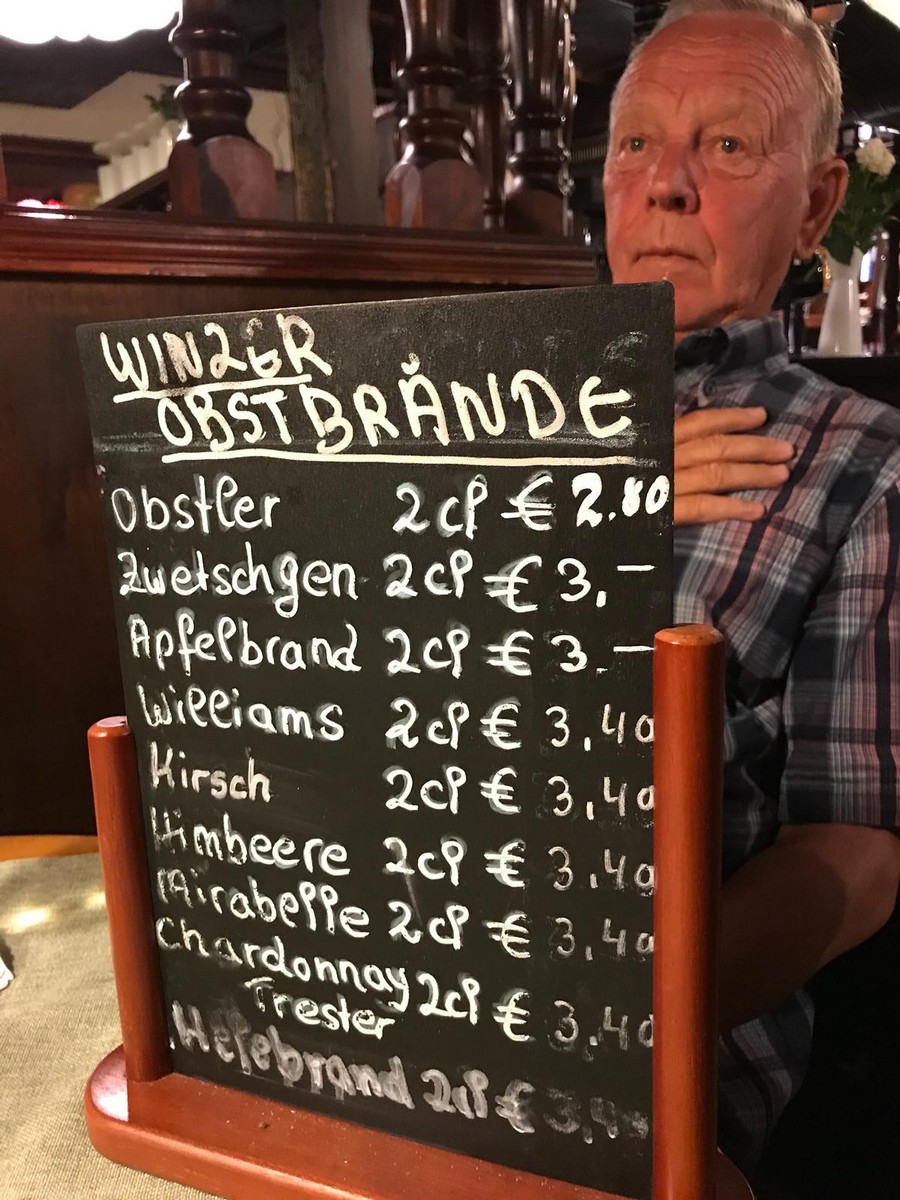 WINZER
OBSTBRÄNDE
Obstler 2cl € 2.80
Zwetschgen 2cl € 3,-
Apfelbrand 2cl € 3.-
Williams 2cl € 3,40
Kirsch 2cl € 3,40
Himbeere 2cl € 3,40
Mirabelle 2cl € 3,40
Chardonnay 2cl € 3,40
Trester
Hefebrand 2cl € 3,40